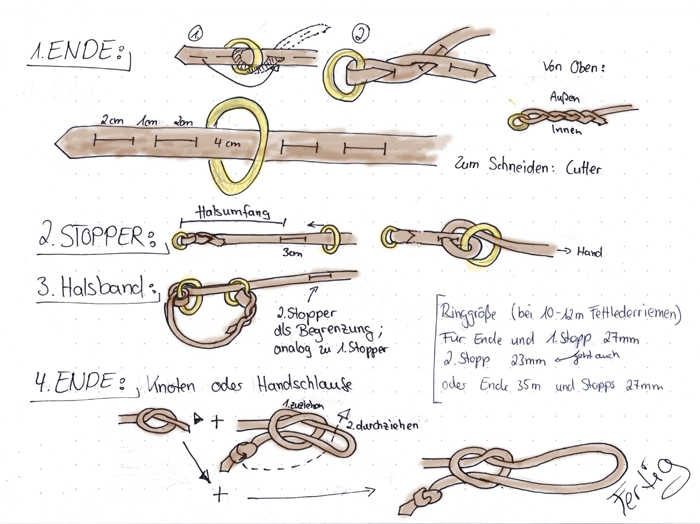 1. ENDE:
1
2
Von Oben:
Außen
Innen
2cm 1cm 2cm
4 cm
Zum Schneiden: Cutter
Halsumfang
2. STOPPER:
3cm
→ Hand
3. Halsband:
2. Stopper
als Begrenzung;
analog zu 1. Stopper
Ringgröße (bei 10-12m Fettlederriemen)
Für Ende und 1. Stopp 27mm
2. Stopp 23mm ← geht auch
oder Ende 35m und Stopps 27mm
4. ENDE: Knoten oder Handschlaufe
1. zuziehen
2. durchziehen
+
+
Fertig